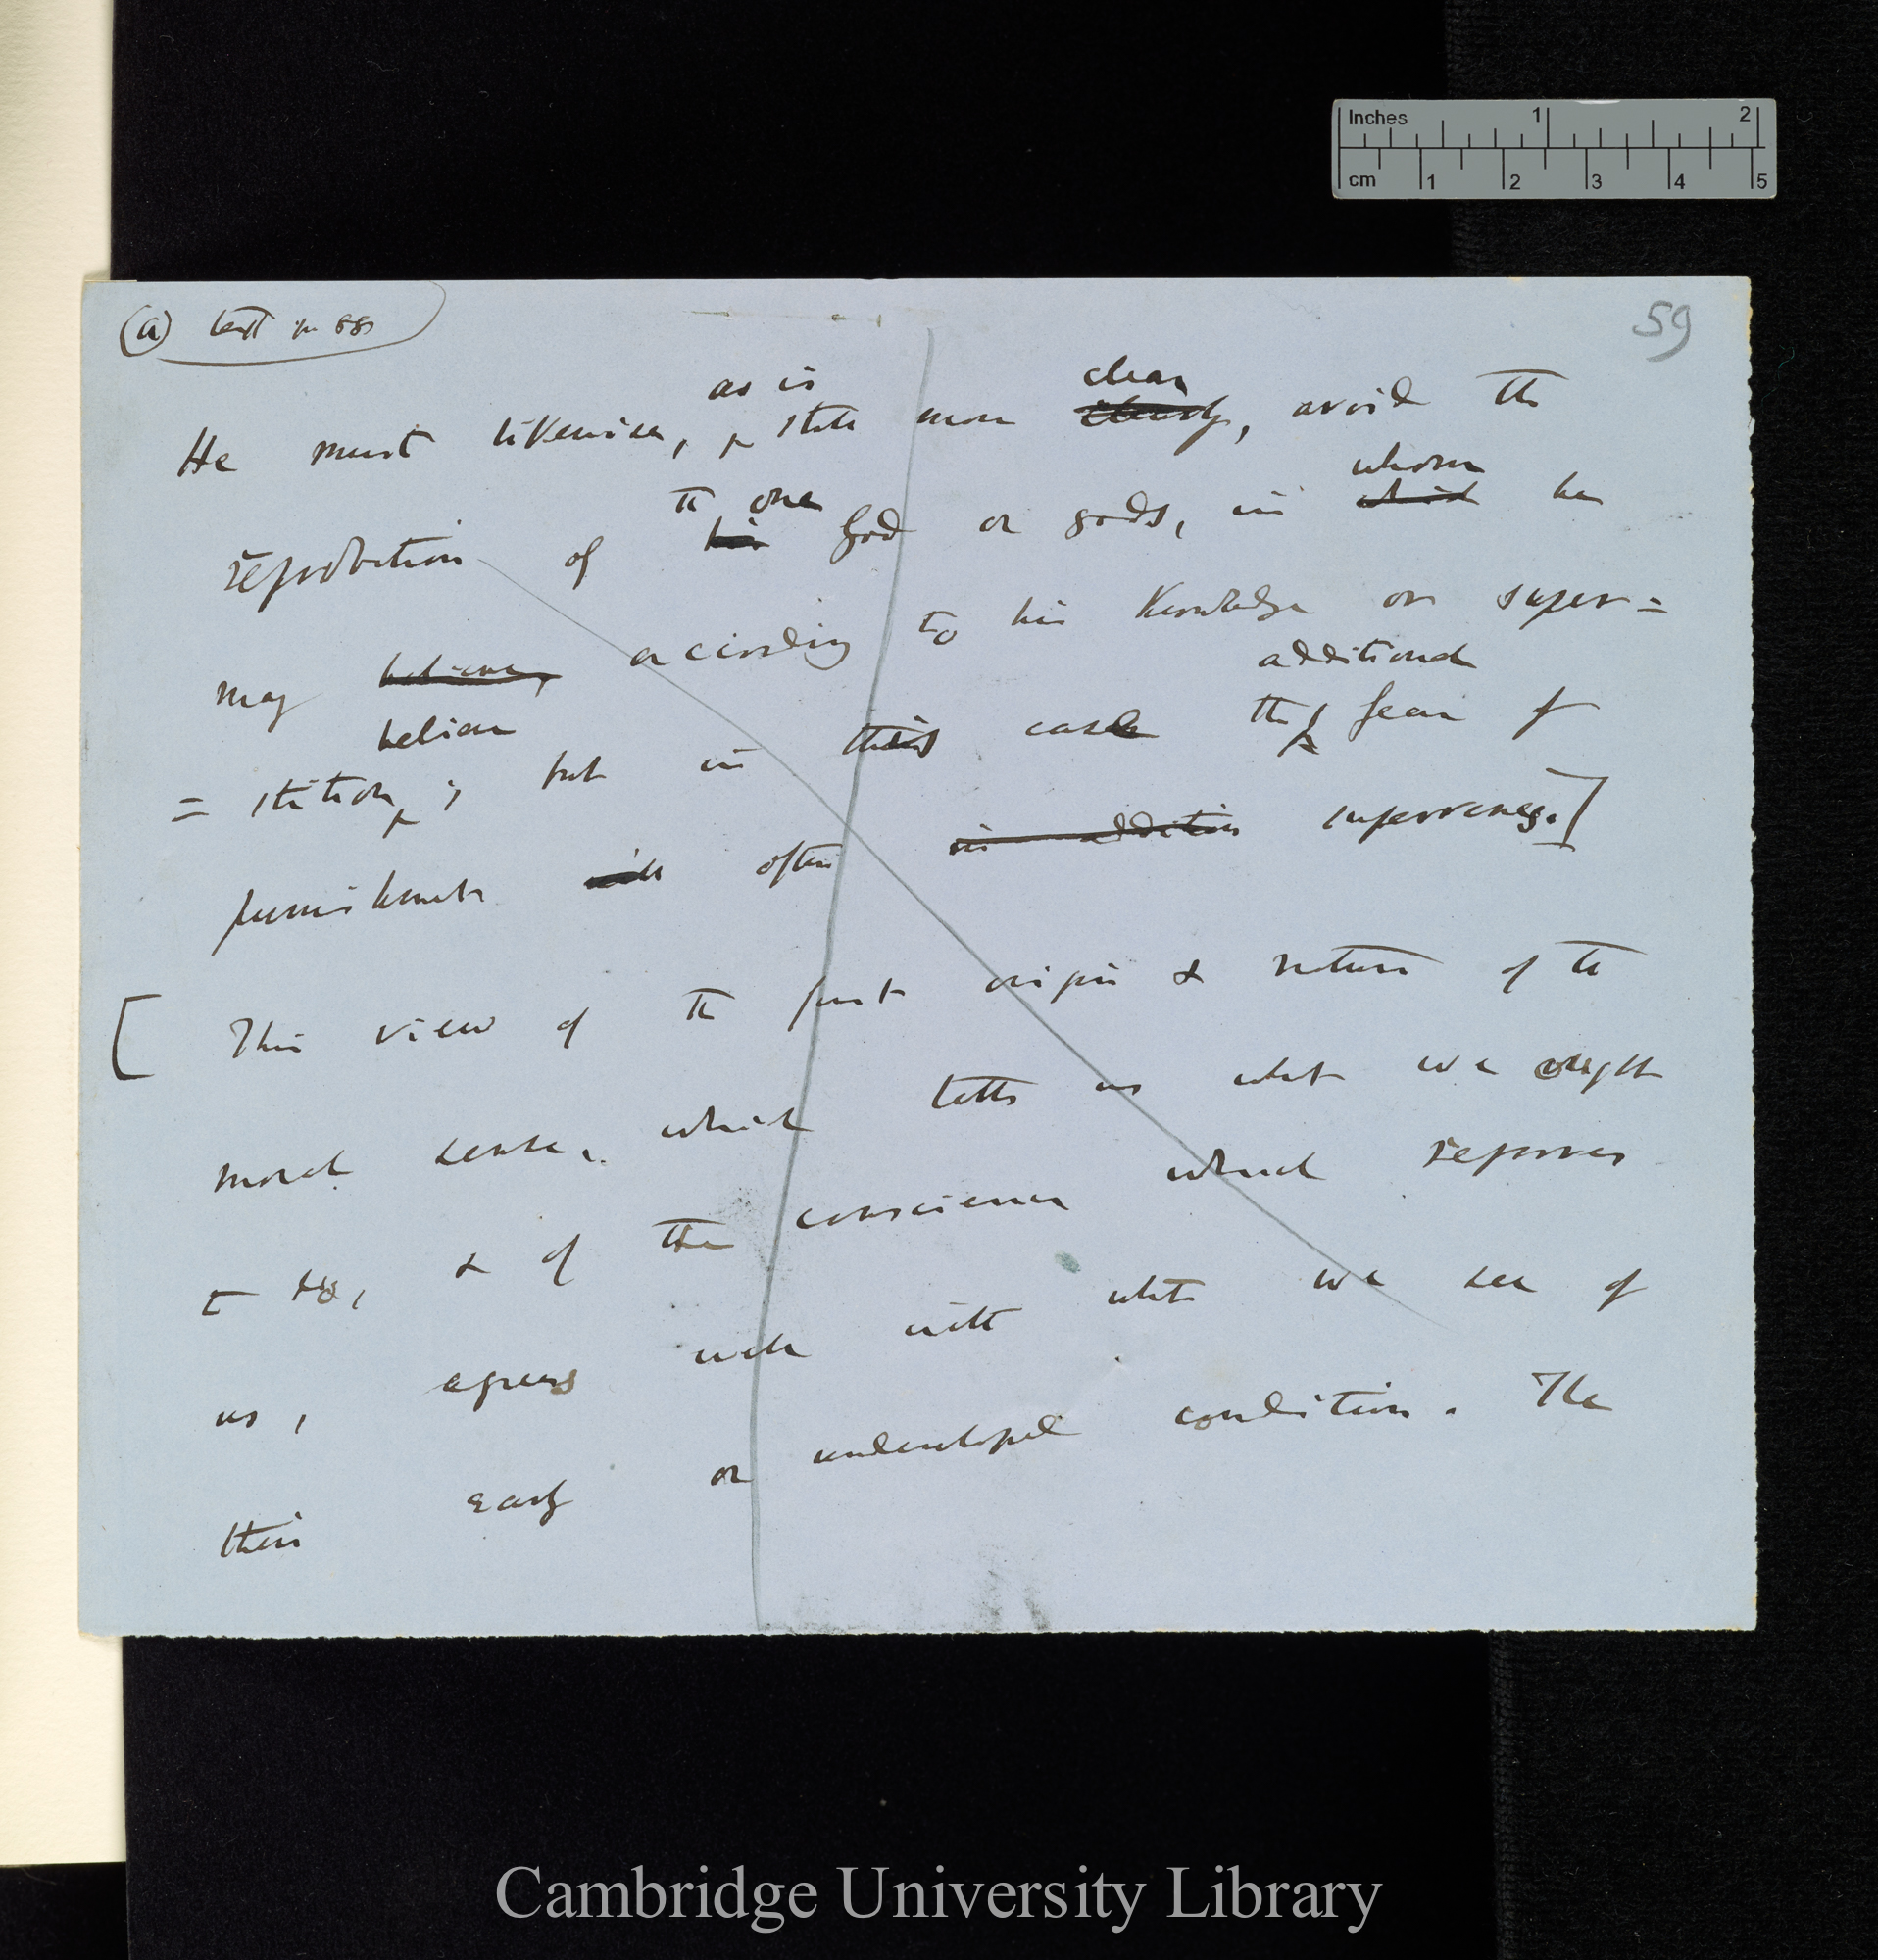 (a) text p 88
59
as is clear
He must likewise, state more clearly, avoid the
the one whom
reprobation of his God or gods, in which he
may believe, according to his knowledge or super=
believe additional
=stition; but in this case the fear of
punishment will often in addition supervenes.]
[This view of the first origin & nature of the
moral sense, which tells us what we ought
to do, & of the conscience which reproves
us, agrees well with what we see of
their early or undeveloped condition. The
Inches 1 2
cm 1 2 3 4 5
Cambridge University Library